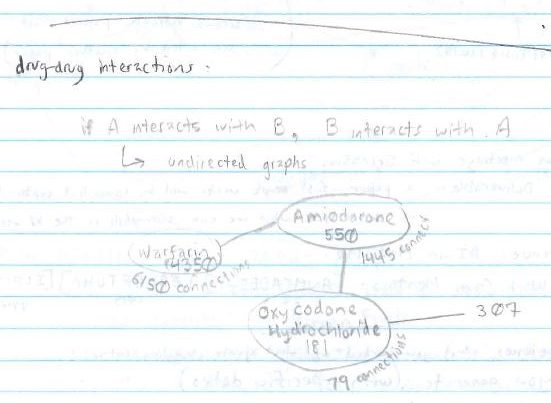 drug-drug interactions.
if A interacts with B, B interacts with A
↳ undirected graphs
Amiodarone
550
1445 connect
Warfarin
14350
6150 connections
Oxycodone
Hydrochloride
181
79 connections
307